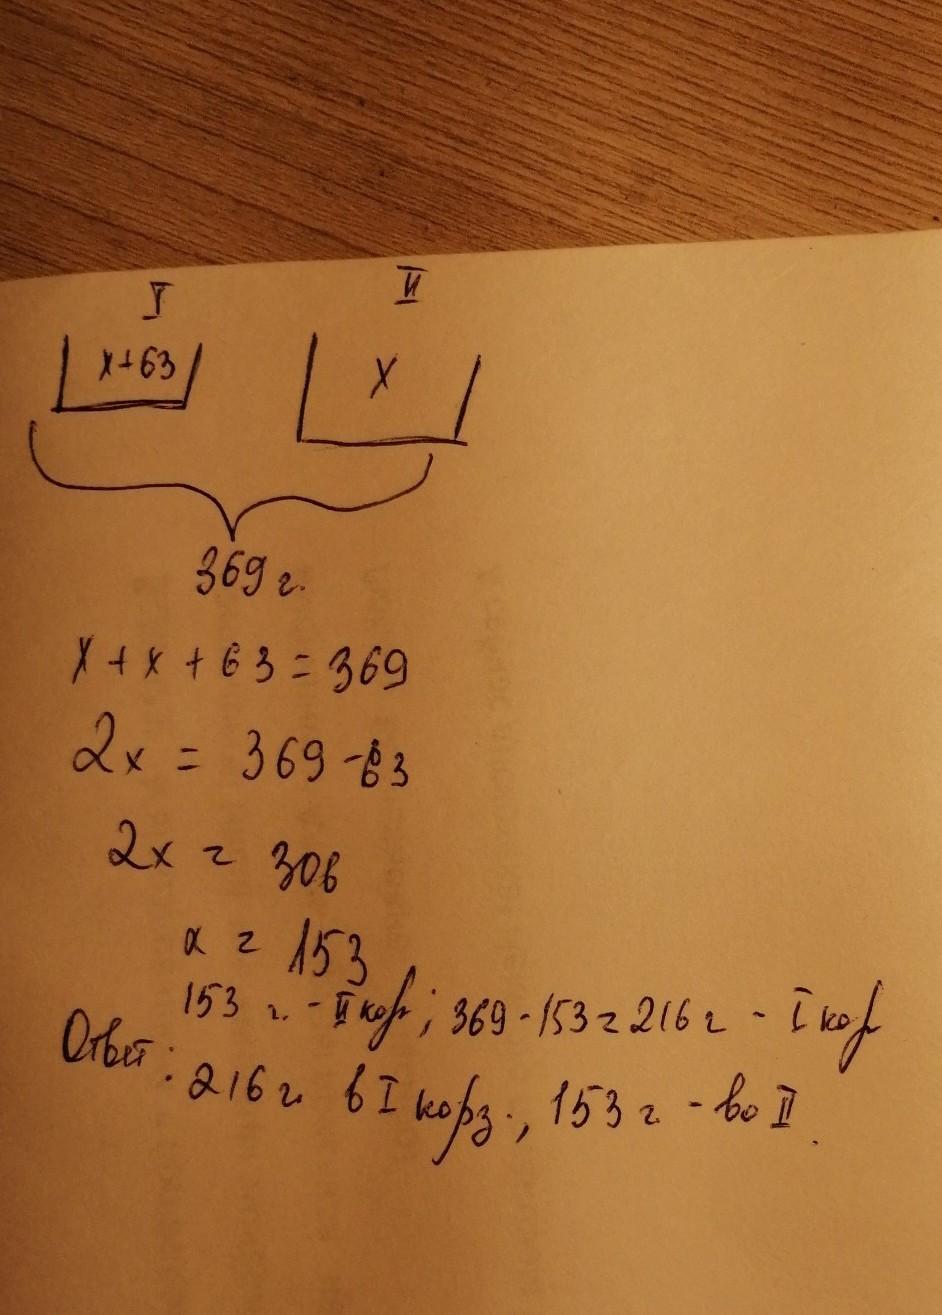 I II
x+63 x
369 г.
x + x + 63 = 369
2x = 369 - 63
2x = 306
x = 153
153 г. - II кор; 369 - 153 = 216 г - I кор
Ответ: 216 г. в I корз., 153 г. - во II.